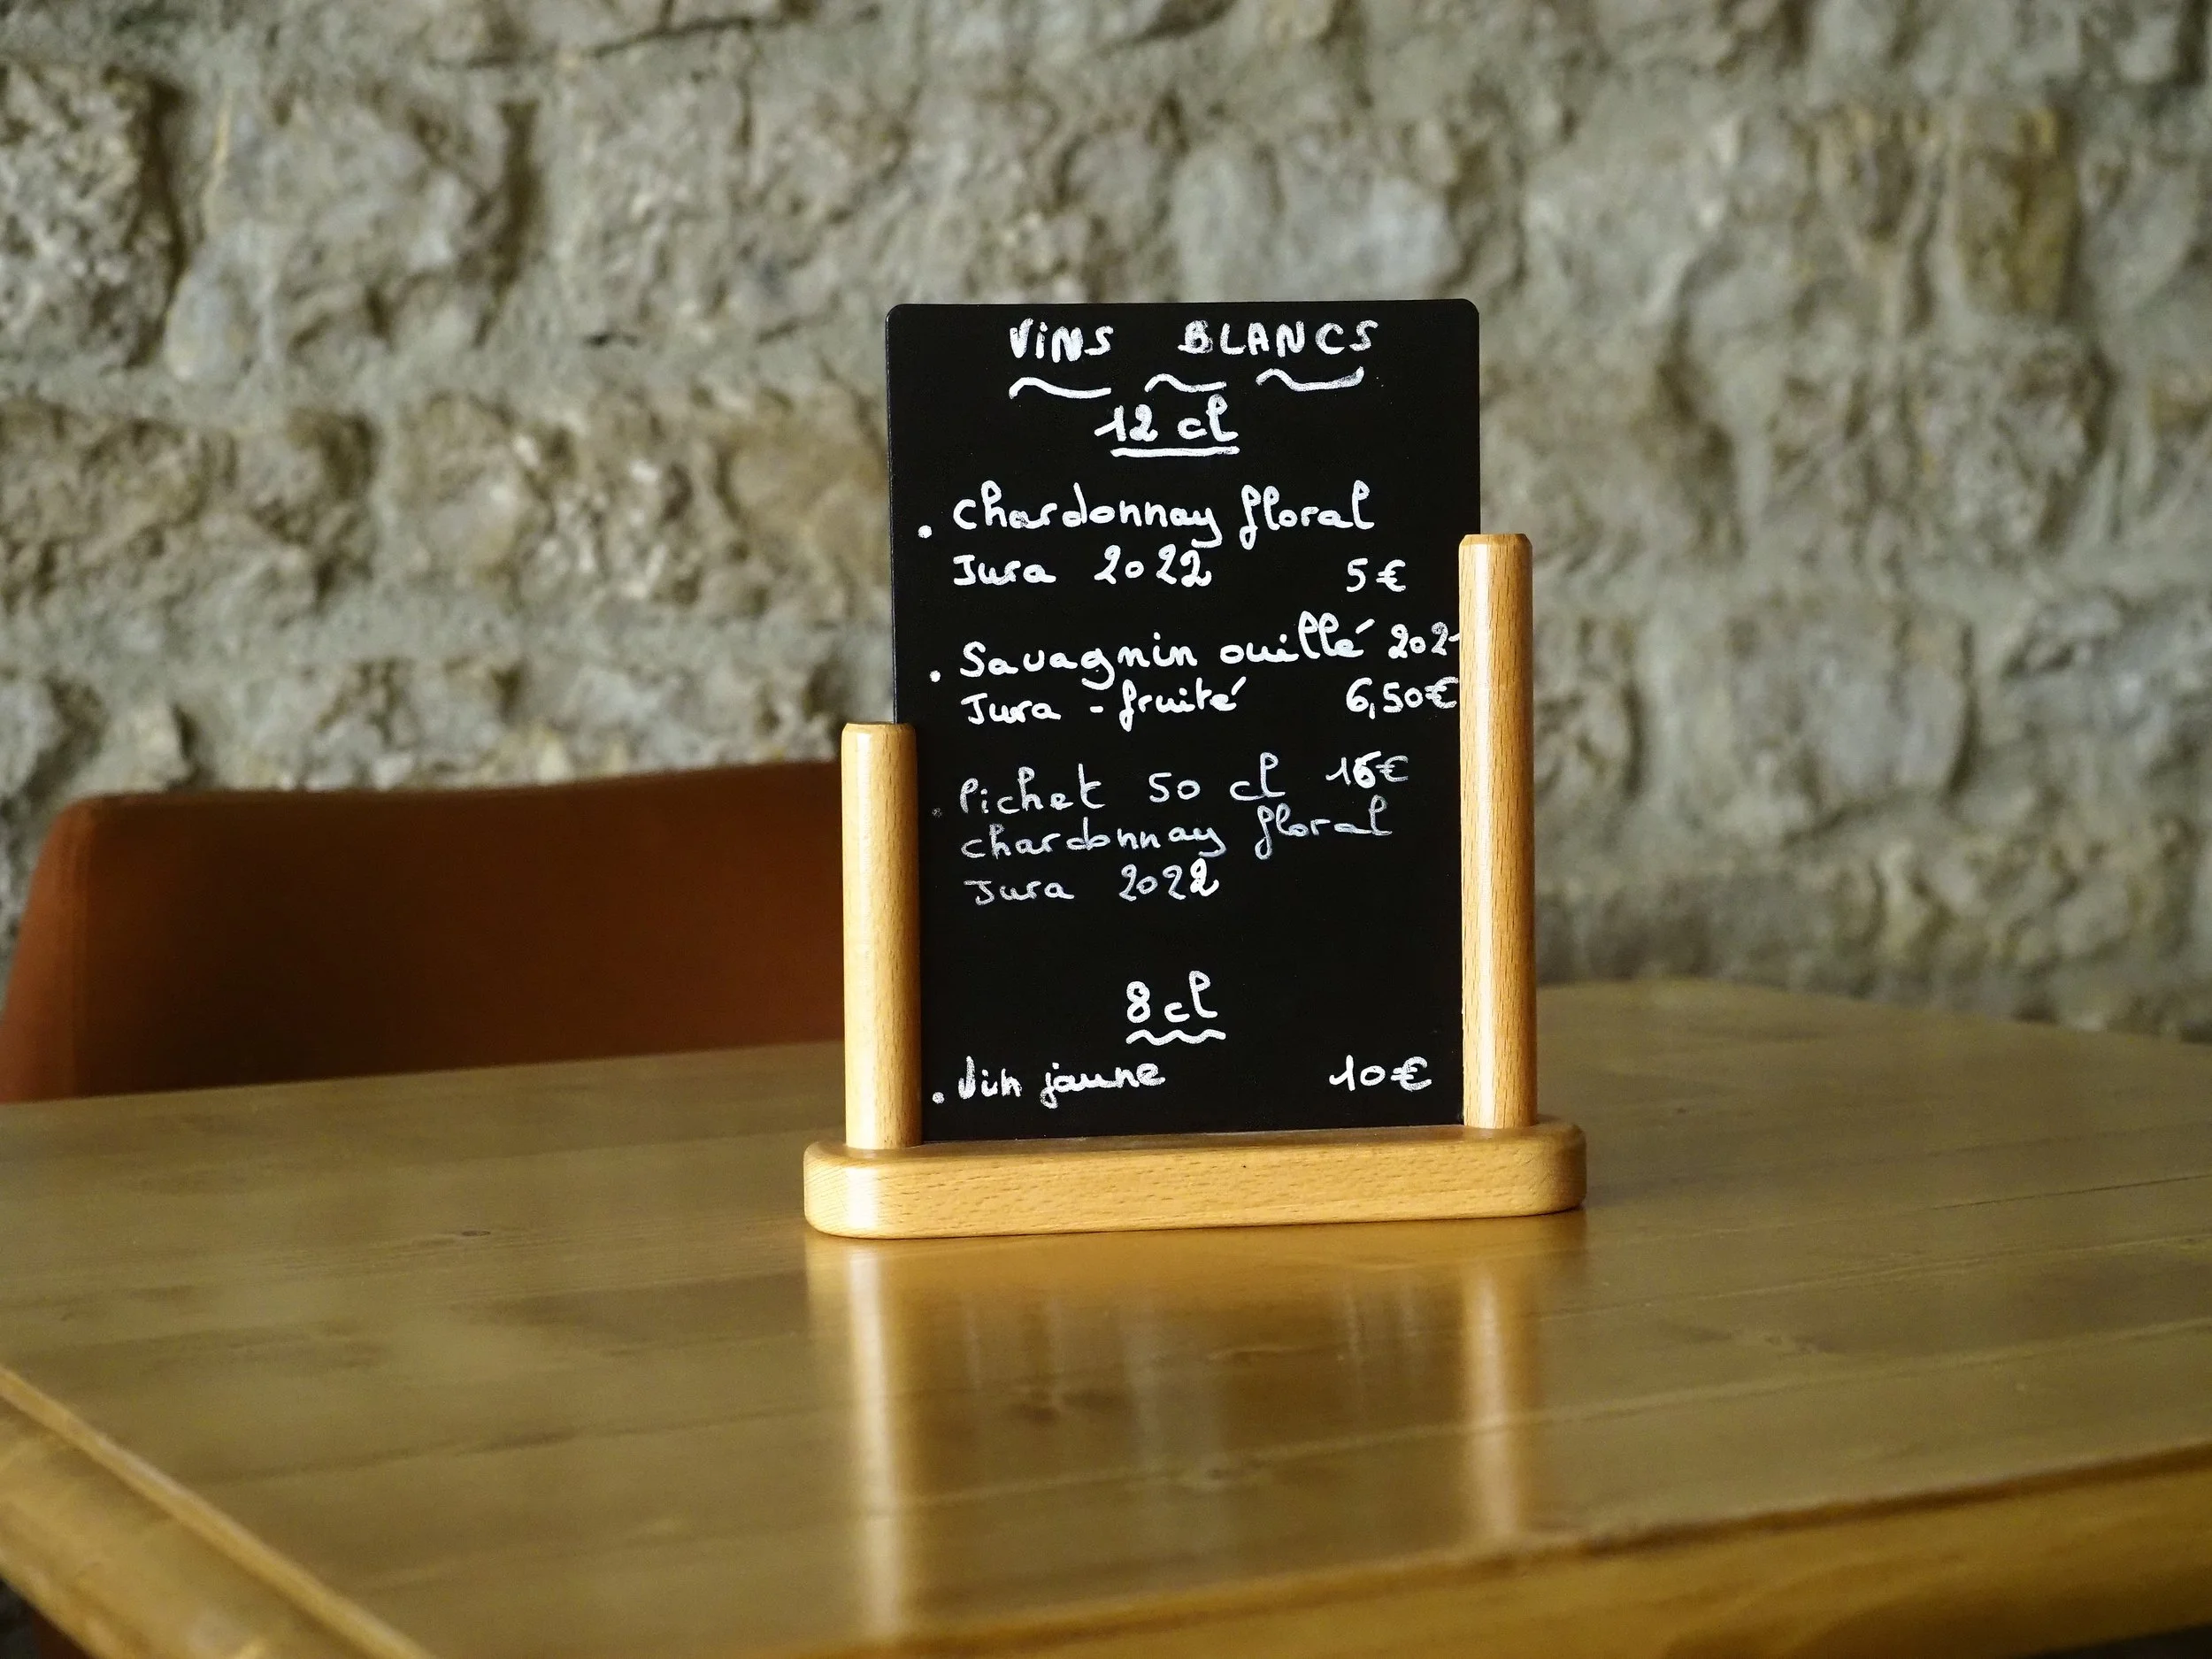 VINS BLANCS
12 cl
. Chardonnay floral
Jura 2022 5€
. Savagnin ouillé 2021
Jura - fruité 6,50€
. Pichet 50 cl 16€
chardonnay floral
Jura 2022
8 cl
. Vin jaune 10€